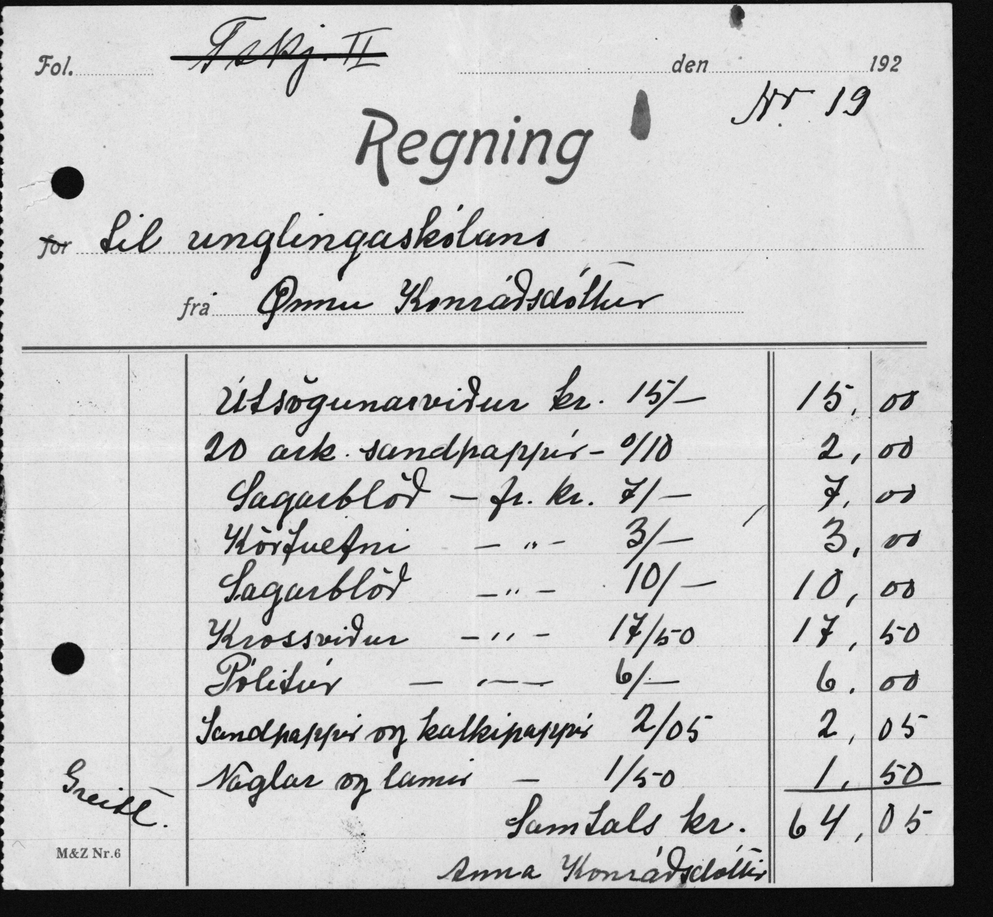 Fol. Fskj. II den 192
Nr 19
Regning
for til unglingaskólans
frá Önnu Konráðsdóttur
Útsögunarviður kr. 15/— 15,00
20 ark. sandpappír - 0/10 2,00
Sagarblöð — fr. kr. 7/— 7,00
Körfuefni — „ — 3/— 3,00
Sagarblöð — „ — 10/— 10,00
Krossviður — „ — 17/50 17,50
Pólitúr — „ — 6/— 6,00
Sandpappír og kalkipappír 2/05 2,05
Naglar og lamir — 1/50 1,50
Greitt.
Samtals kr. 64,05
M&Z Nr.6
Anna Konráðsdóttir